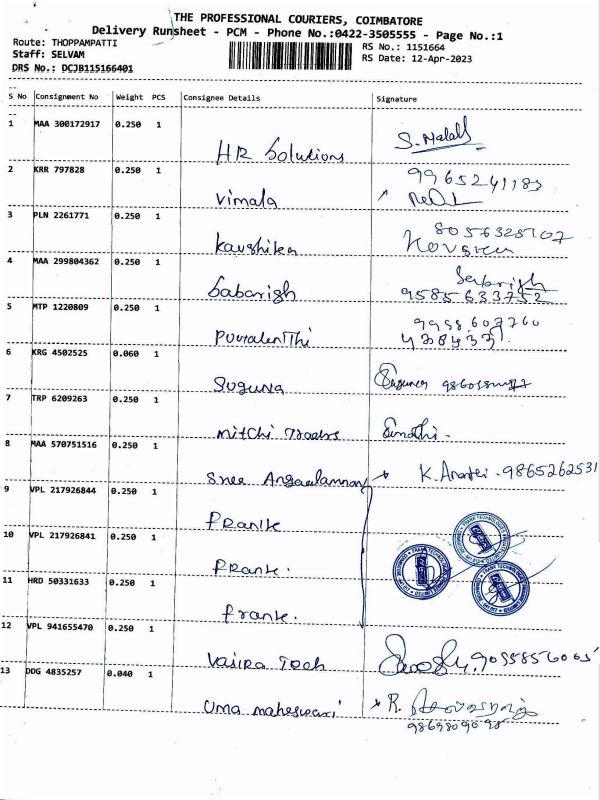 THE PROFESSIONAL COURIERS, COIMBATORE
Delivery Runsheet - PCM - Phone No.:0422-3505555 - Page No.:1
Route: THOPPAMPATTI
RS No.: 1151664
Staff: SELVAM
RS Date: 12-Apr-2023
DRS No.: DCJB115166401
S No Consignment No Weight PCS Consignee Details Signature
1 MAA 300172917 0.250 1
HR Solutions
2 KRR 797828 0.250 1 9965241183
Vimala
3 PLN 2261771 0.250 1
Kaushika
4 MAA 299804362 0.250 1 Sabarish
Sabarish 9585633752
5 MTP 1220809 0.250 1 9958607760
6 KRG 4502525 0.060 1
Suguna Suguna
7 TRP 6209263 0.250 1
Mitchi Traders
8 MAA 570751516 0.250 1
Sree Angaalamman 9865262531
9 VPL 217926844 0.250 1
Prank
10 VPL 217926841 0.250 1
Prank.
11 HRD 50331633 0.250 1
Prank.
12 VPL 941655470 0.250 1
Vajira Tech
13 DDG 4835257 0.040 1
Uma maheswari R.